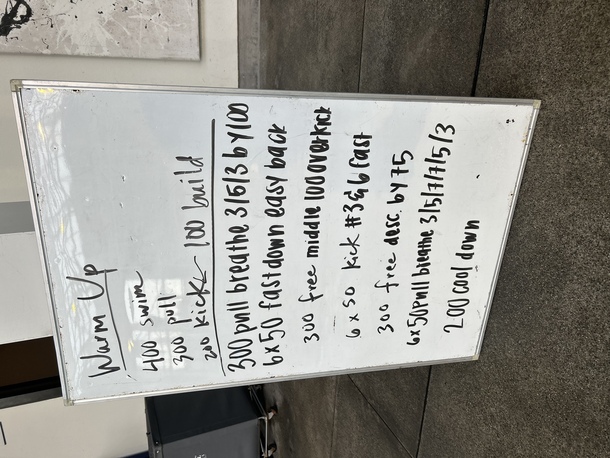 Warm Up
400 swim
300 pull
200 kick ← 100 build
300 pull breathe 3/5/3 by 100
6x50 fast down easy back
300 free middle 100 overkick
6 x 50 kick #3&6 fast
300 free desc. by 75
6x50 pull breathe 3/5/7/7/5/3
200 cool down